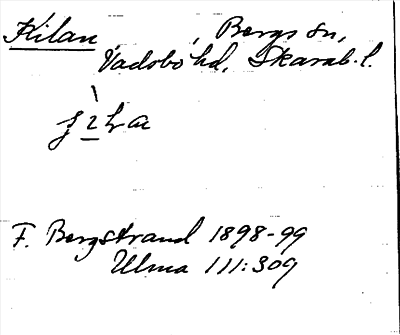 Kilan, Bergs sn,
Vadsbo hd, Skarab. l.
F. Bergstrand 1898-99
Ulma 111:309